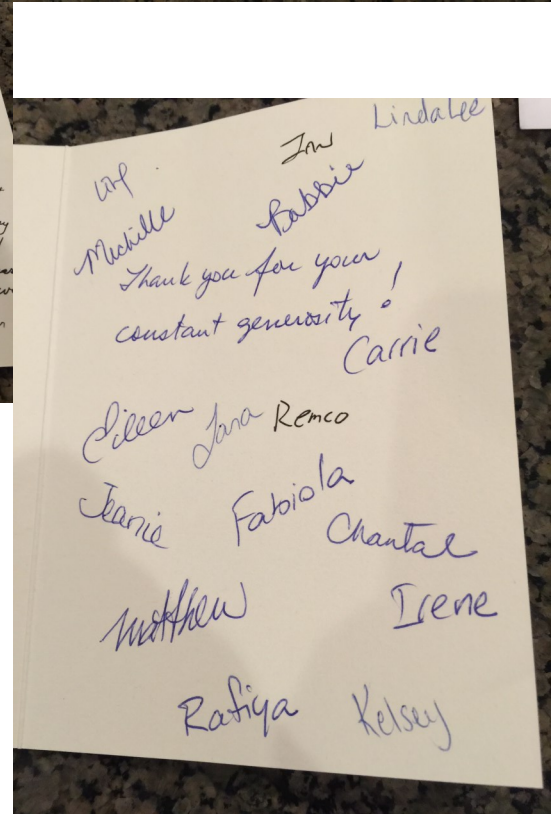 LindaLee
Michelle
Babbie
Thank you for your
constant generosity!
Carrie
Eileen
Remco
Jeanie
Fabiola
Chantal
Matthew
Irene
Rafiya
Kelsey